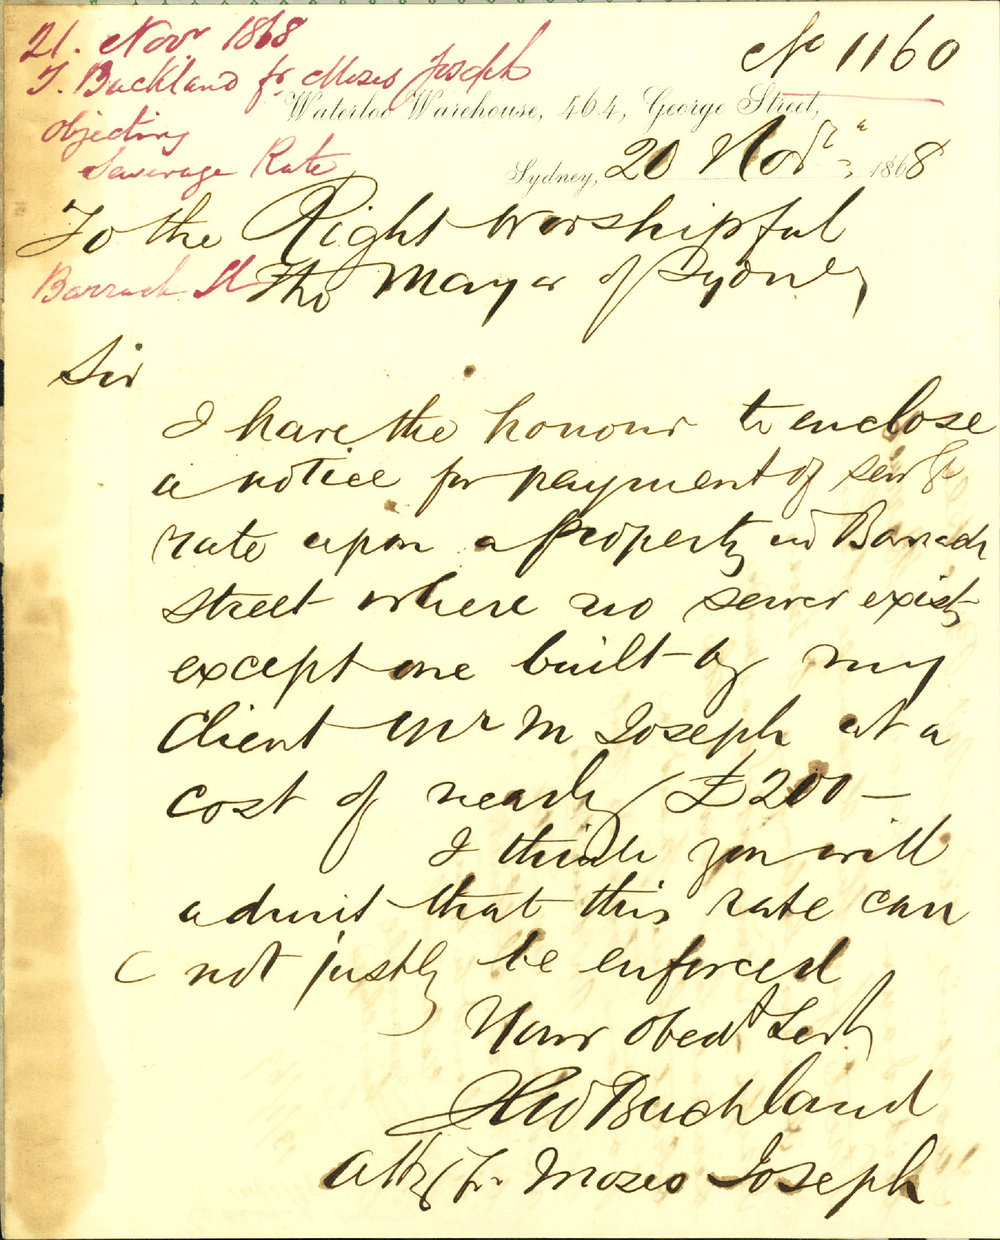 21. Novr 1868
No 1160
T. Buckland fr. Moses Joseph
Waterloo Warehouse, 464, George Street,
objecting
Sewerage Rate
Sydney, 20 Novr 1868
To the Right Worshipful
Barrack St
The Mayor of Sydney
Sir
I have the honour to enclose
a notice for payment of sewge
rate upon a property in Barrack
street where no sewer exists
except one built by my
Client Mr M Joseph at a
cost of nearly £200 —
I think you will
admit that this rate can
not justly be enforced
Your obedt Servt
Buckland
atty fr. Moses Joseph